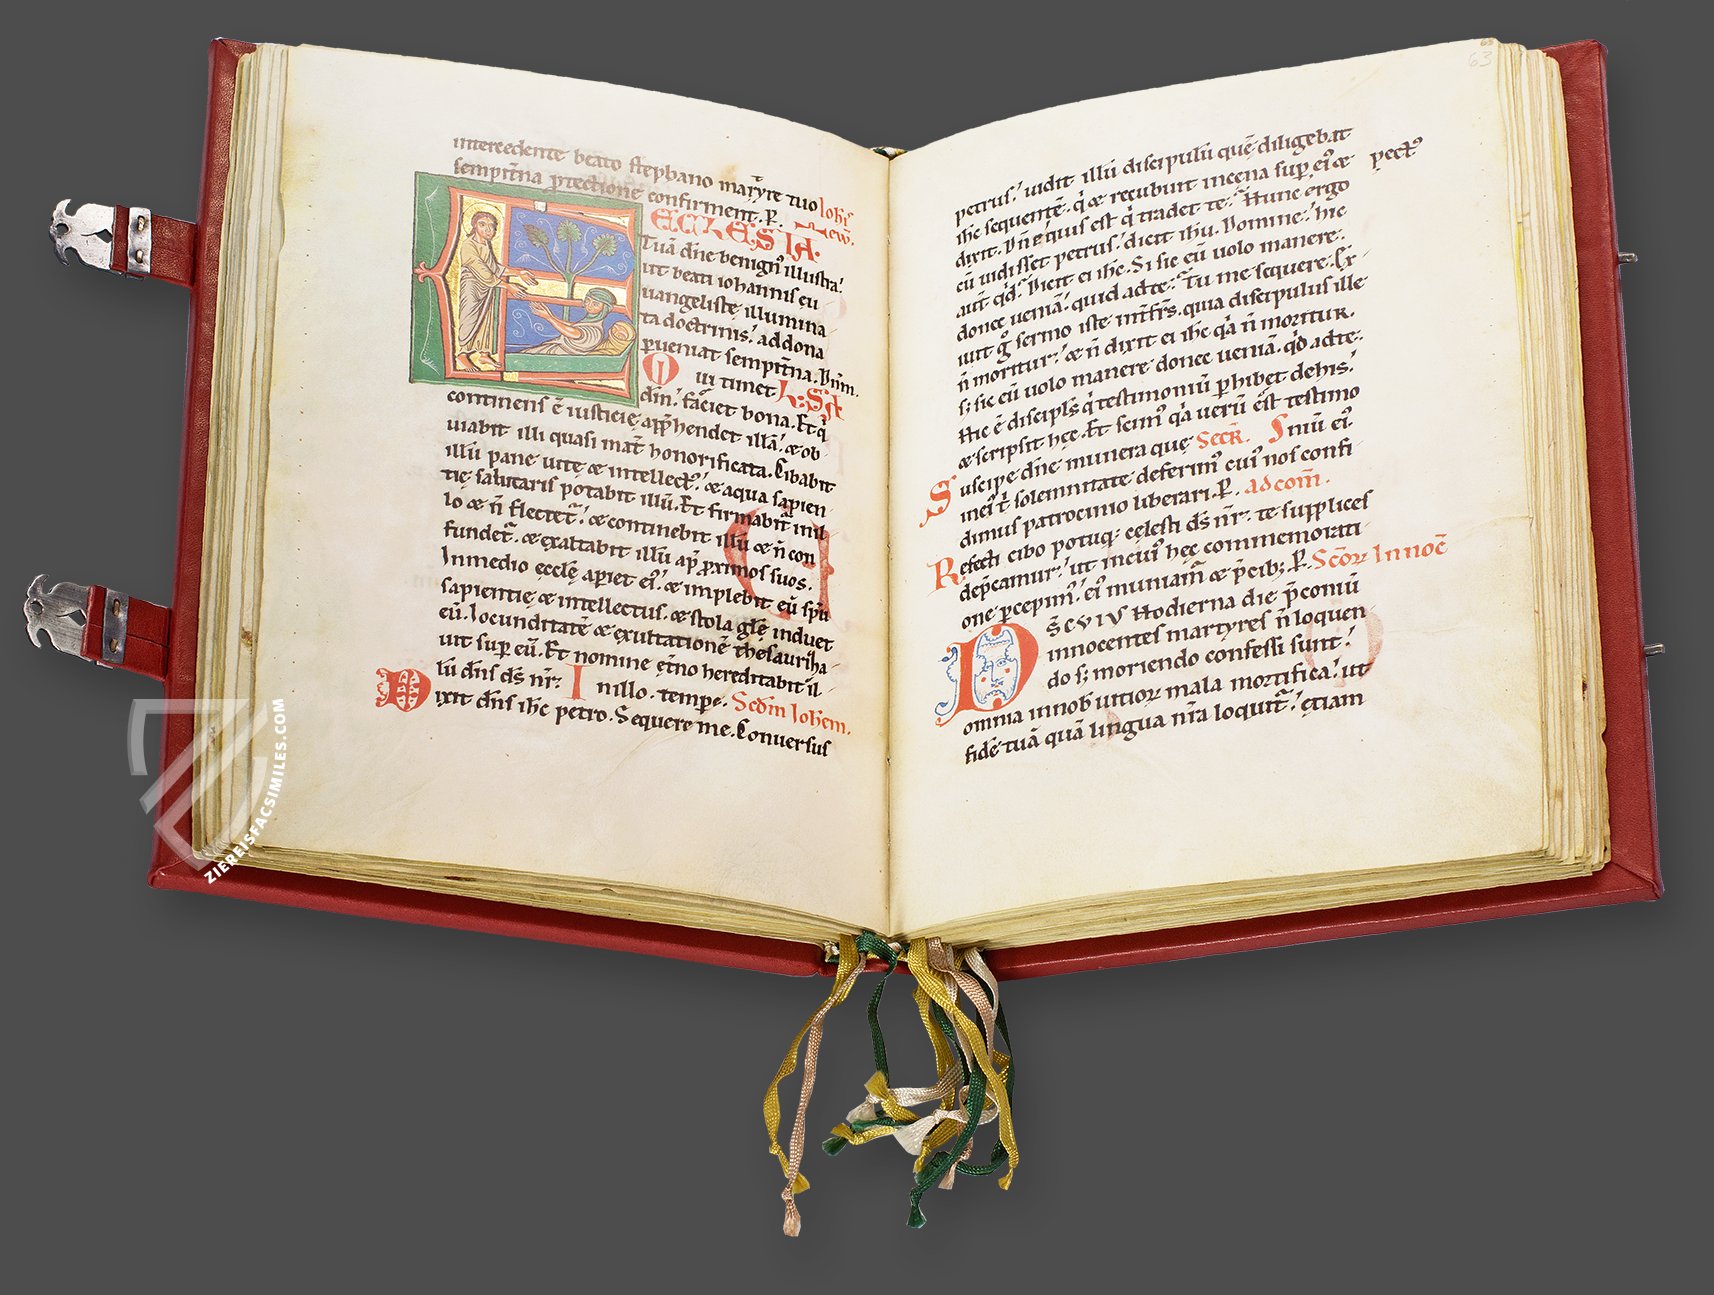 intercedente beato stephano martyre tuo Iohis
sempit̄na p̄tectione confirment. P̄. Ꝛew̄.
ECCLESIĀ
Tuā dn̄e benign' illustra.
ut beati iohannis eu
uangelistę illumina
ta doctrinis. ad dona
pueniat sempit̄na. P̄ Dn̄m.
Qui timet L. S̄A
dm̄. faciet bona. Et q̄
continens ē iusticię apphendet illā. & ob
uiabit illi quasi mat̄ honorificata. Cibabit
illū pane uite & intellect'. & aqua sapien
tię salutaris potabit illū. Et firmabit̄ in il
lo & n̄ flectet̄. & continebit illū & n̄ con
fundet̄. & exaltabit illū ap̄ p̄ximos suos.
Inmedio ecclę apiet ei'. & implebit eū sp̄u
sapientię & intellectus. & stola glę induet
eū. Iocunditatē & exultationē thesauriza
uit sup eū. Et nomine et̄no hereditabit il
lū dn̄s d̄s nr̄. Inillo. tempe. Scd̄m Iohem.
Dixit dn̄s ihc petro. Sequere me. Conuersus
63
petrus. uidit illū discipulū quē diligebat
ihc sequentē. q̄ & recubuit incena sup ei' & pect'
dixit. Dn̄e quis est q̄ tradet te. Hunc ergo
cū uidisset petrus. dicit ihu. Domine. hic
aut̄ qd̄. Dicit ei ihc. Si sic eū uolo manere.
donec ueniā. quid adte. Tu me sequere. Ex
iuit g̊ sermo iste int̄ fr̄s. quia discipulus ille
n̄ moritur. & n̄ dixit ei ihc q̄a n̄ moritur.
s; sic eū uolo manere donec ueniā. qd̄ adte.
Hic ē discipls q̄ testimoniū phibet dehis.
& scripsit hęc. Et scim' q̄a uerū ēst testimo
Suscipe dn̄e munera que Secr̄. niū ei'
inei' t̄ solemnitate deferim' cui' nos confi
dimus patrocinio liberari. P̄. adcom̄.
Refecti cibo potuq; cęlesti d̄s nr̄. te supplices
dep̄camur. ut incui' hęc commemorati
one pcepim'. ei' muniam̄ & p̄cib;. P̄. Sc̄or Innoc̄
DS̄ CVIVS Hodierna die p̄coniū
innocentes martyres n̄ loquen
do s; moriendo confessi sunt.
omnia innob' uitior mala mortifica. ut
fidē tuā quā lingua nr̄a loquit̄. ętiam
ZIEREISFACSIMILES.COM